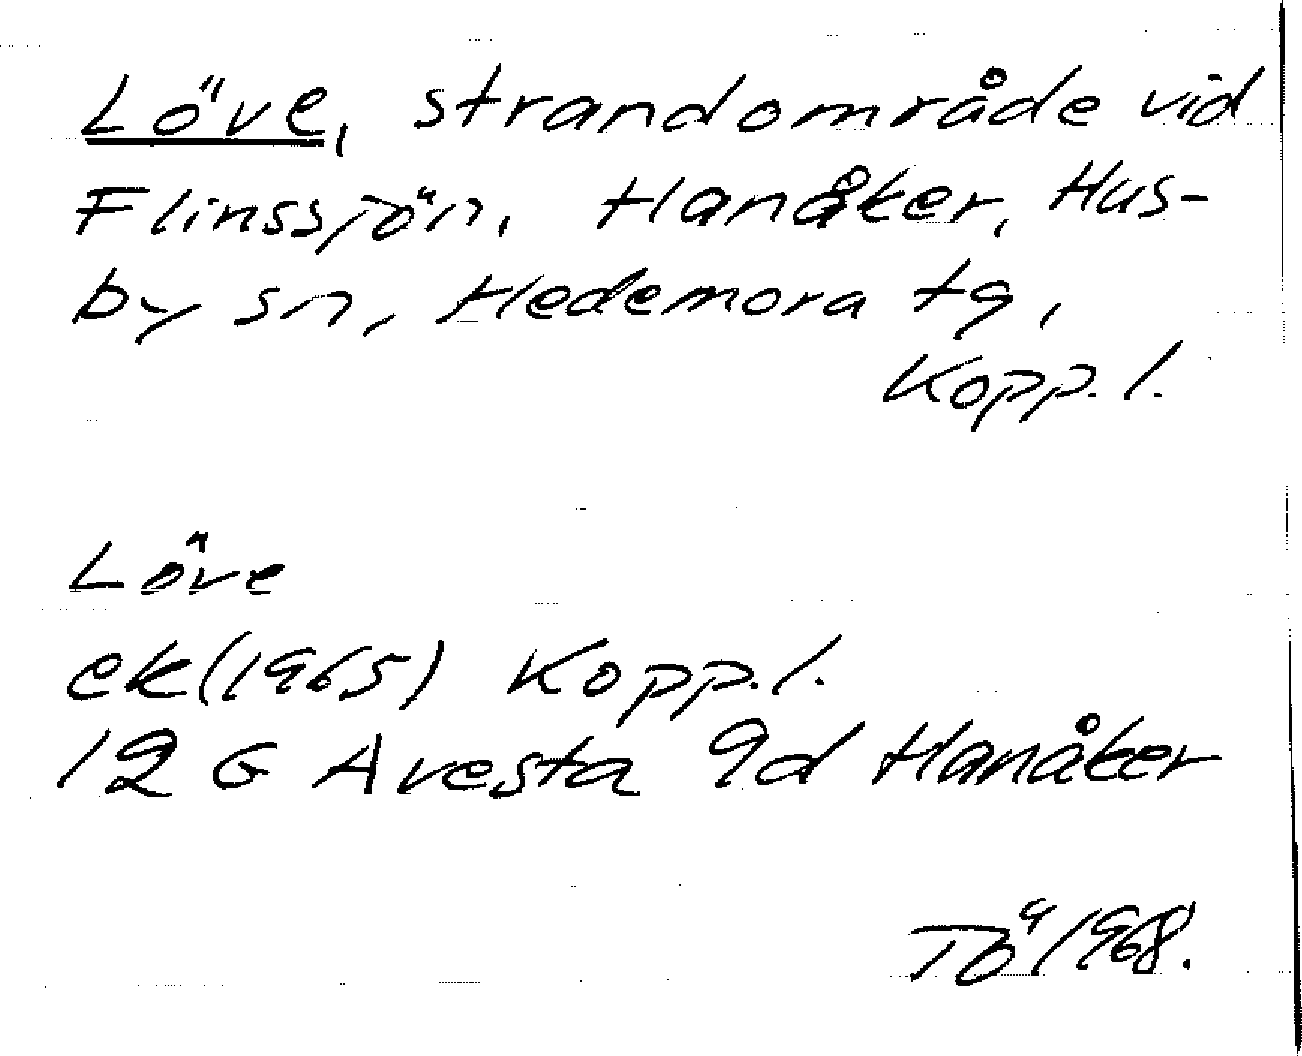 Löve, strandområde vid
Flinssjön, Hanåker, Hus-
by sn, Hedemora tg,
Kopp. l.
Löve
ek (1965) Kopp. l.
12 G Avesta 9d Hanåker
TÖ 1968.